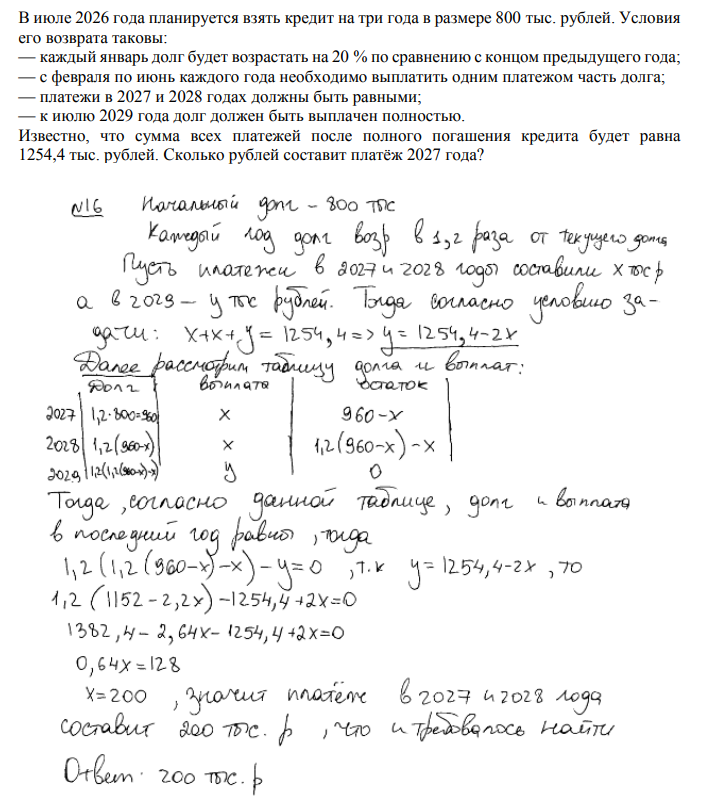 В июле 2026 года планируется взять кредит на три года в размере 800 тыс. рублей. Условия
его возврата таковы:
— каждый январь долг будет возрастать на 20 % по сравнению с концом предыдущего года;
— с февраля по июнь каждого года необходимо выплатить одним платежом часть долга;
— платежи в 2027 и 2028 годах должны быть равными;
— к июлю 2029 года долг должен быть выплачен полностью.
Известно, что сумма всех платежей после полного погашения кредита будет равна
1254,4 тыс. рублей. Сколько рублей составит платёж 2027 года?
№16 Начальный долг – 800 тыс
Каждый год долг возр в 1,2 раза от текущего долга
Пусть платежи в 2027 и 2028 годы составили x тыс р
а в 2029 – y тыс рублей. Тогда согласно условию за-
дачи: x+x+y=1254,4=> y=1254,4-2x
Далее рассмотрим таблицу долга и выплат:
Долг выплата остаток
2027 1,2·800=960 x 960-x
2028 1,2(960-x) x 1,2(960-x)-x
2029 1,2(1,2(960-x)-x) y 0
Тогда, согласно данной таблице, долг и выплата
в последний год равны, тогда
1,2(1,2(960-x)-x)-y=0 , т.к y=1254,4-2x , то
1,2(1152-2,2x)-1254,4+2x=0
1382,4-2,64x-1254,4+2x=0
0,64x=128
x=200 , значит платёж в 2027 и 2028 года
составит 200 тыс. р , что и требовалось найти
Ответ: 200 тыс. р